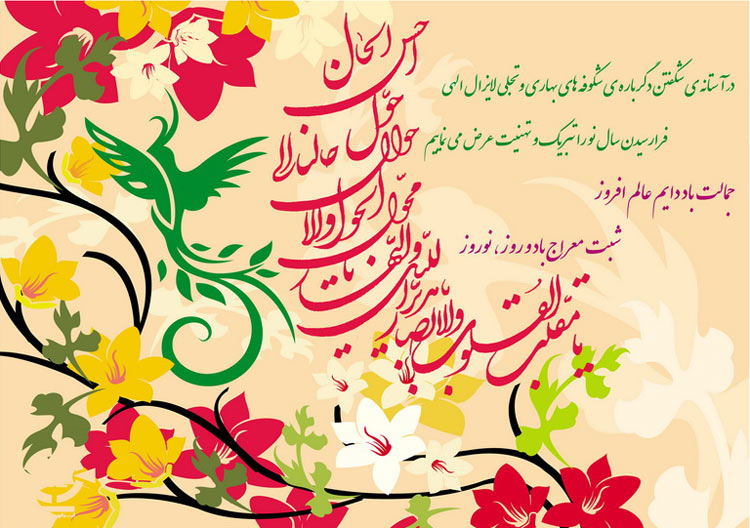 در آستانه‌ی شکفتن دگرباره‌ی شکوفه‌های بهاری و تجلی لایزال الهی
فرا رسیدن سال نو را تبریک و تهنیت عرض می نماییم
جمالت باد دایم عالم افروز
شبت معراج باد و روز، نوروز
یا مقلّب القلوب والابصار
یا مدبّر اللیل و النّهار
یا محوّل الحول والاحوال
حوّل حالنا الی
احسن الحال